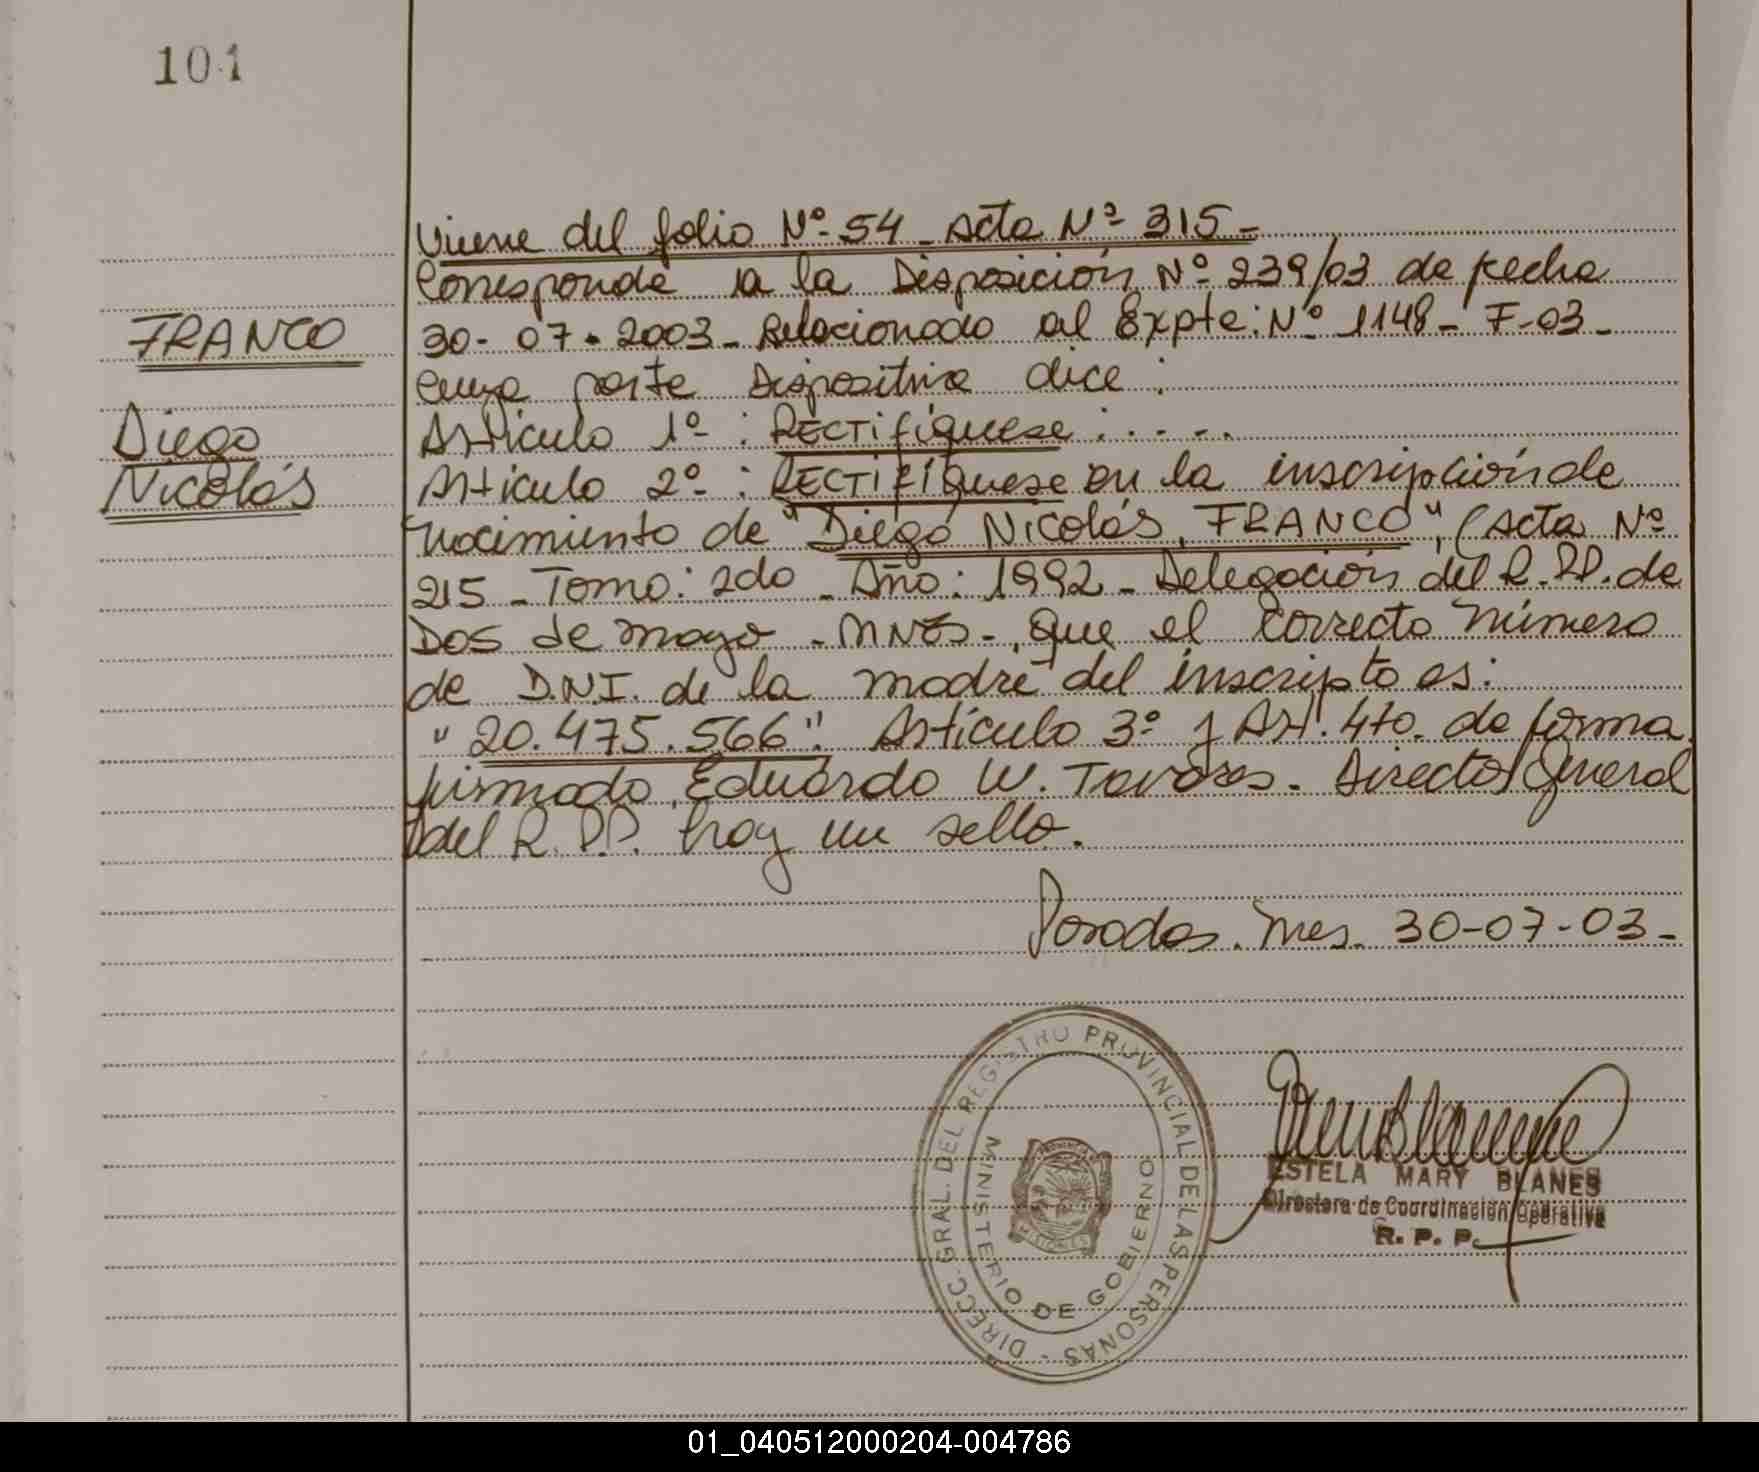 101
Viene del folio Nº 54 - Acta Nº 315 -
Corresponde a la Disposición Nº 239/03 de fecha
FRANCO
30-07-2003 - Relacionado al Expte: Nº 1148 - F-03 -
cuya parte Dispositiva dice :
Diego
Artículo 1º : RECTIFÍQUESE : . - - .
Nicolás
Artículo 2º : RECTIFÍQUESE en la inscripción de
nacimiento de "Diego Nicolás, FRANCO", (Acta Nº
215 - Tomo: 2do - Año: 1992 - Delegación del R.PP. de
DOS de mayo - MNES -, que el correcto número
de D.N.I. de la madre del inscripto es:
"20.475.566". Artículo 3º y Art. 4to. de forma.
firmado Eduardo W. Tavares. Director General
del R.P.P. hay un sello.
Posadas. Mes. 30-07-03 -
DIRECC. GRAL. DEL REGISTRO PROVINCIAL DE LAS PERSONAS -
MINISTERIO DE GOBIERNO
MISIONES
ESTELA MARY BLANES
Directora de Coordinación Operativa
R. P. P.
01_040512000204-004786